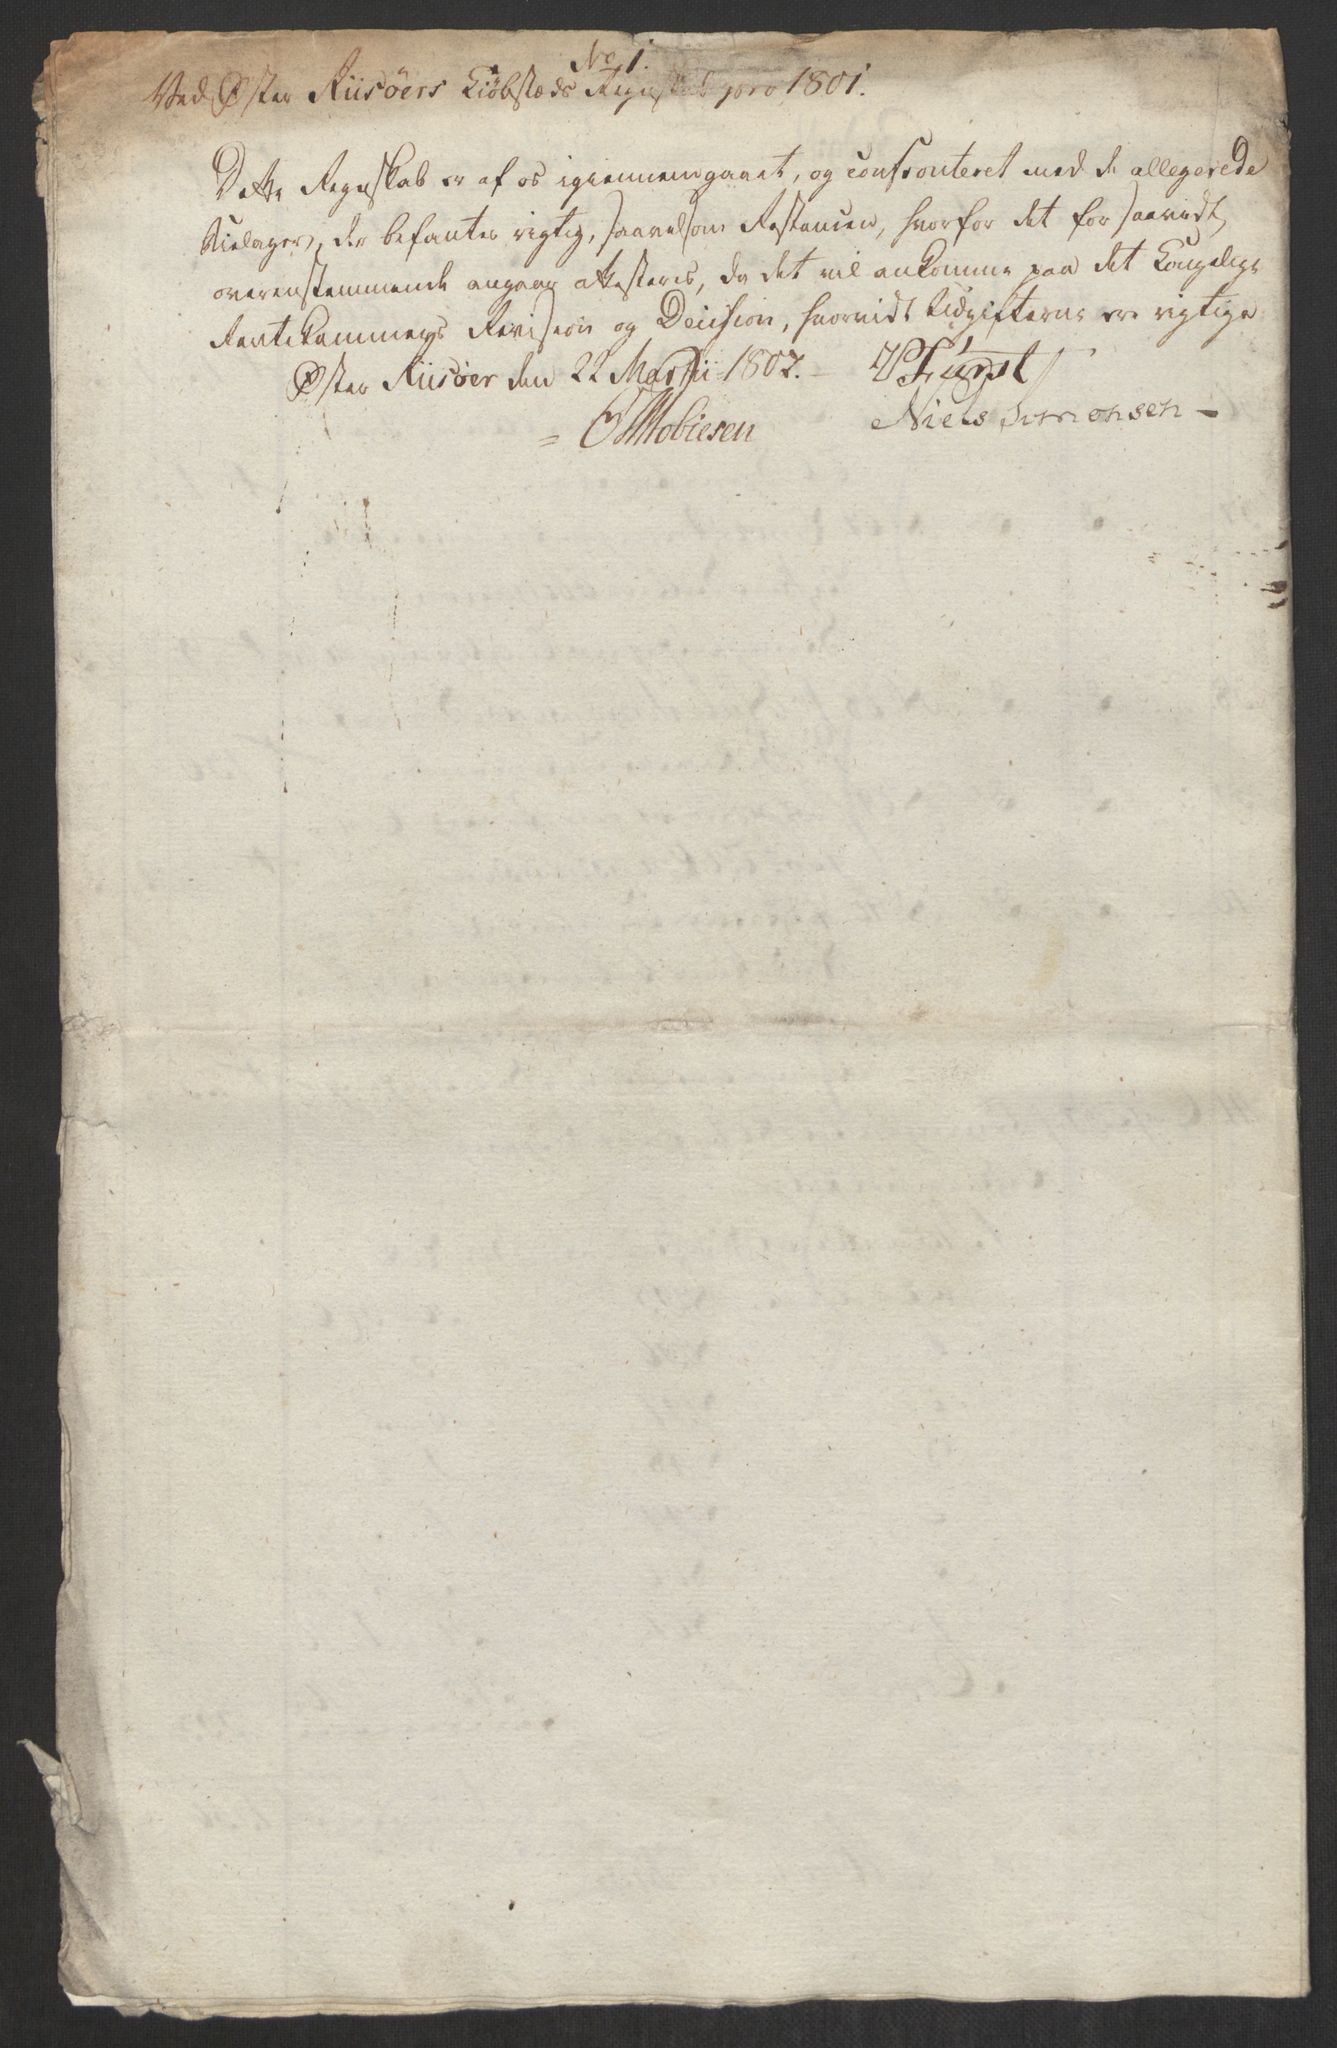 No 1.
Ved Øster Riisöers Kiöbstæds Regnskab pro 1801.
Dette Regnskab er af os igiennemgaaet, og confronteret med de allegerede
Bielager, der befantes rigtig, saavelsom Restancen, hvorfor det for saavidt
overenstemmende angaar attesteres, da det vil ankomme paa det Kongelige
Rentekammers Revision og Decision, hvorvidt Udgifterne ere rigtige
Øster Riisöer den 22 Martii 1802.
Fürst
Mobiesen
Niels Simonsen